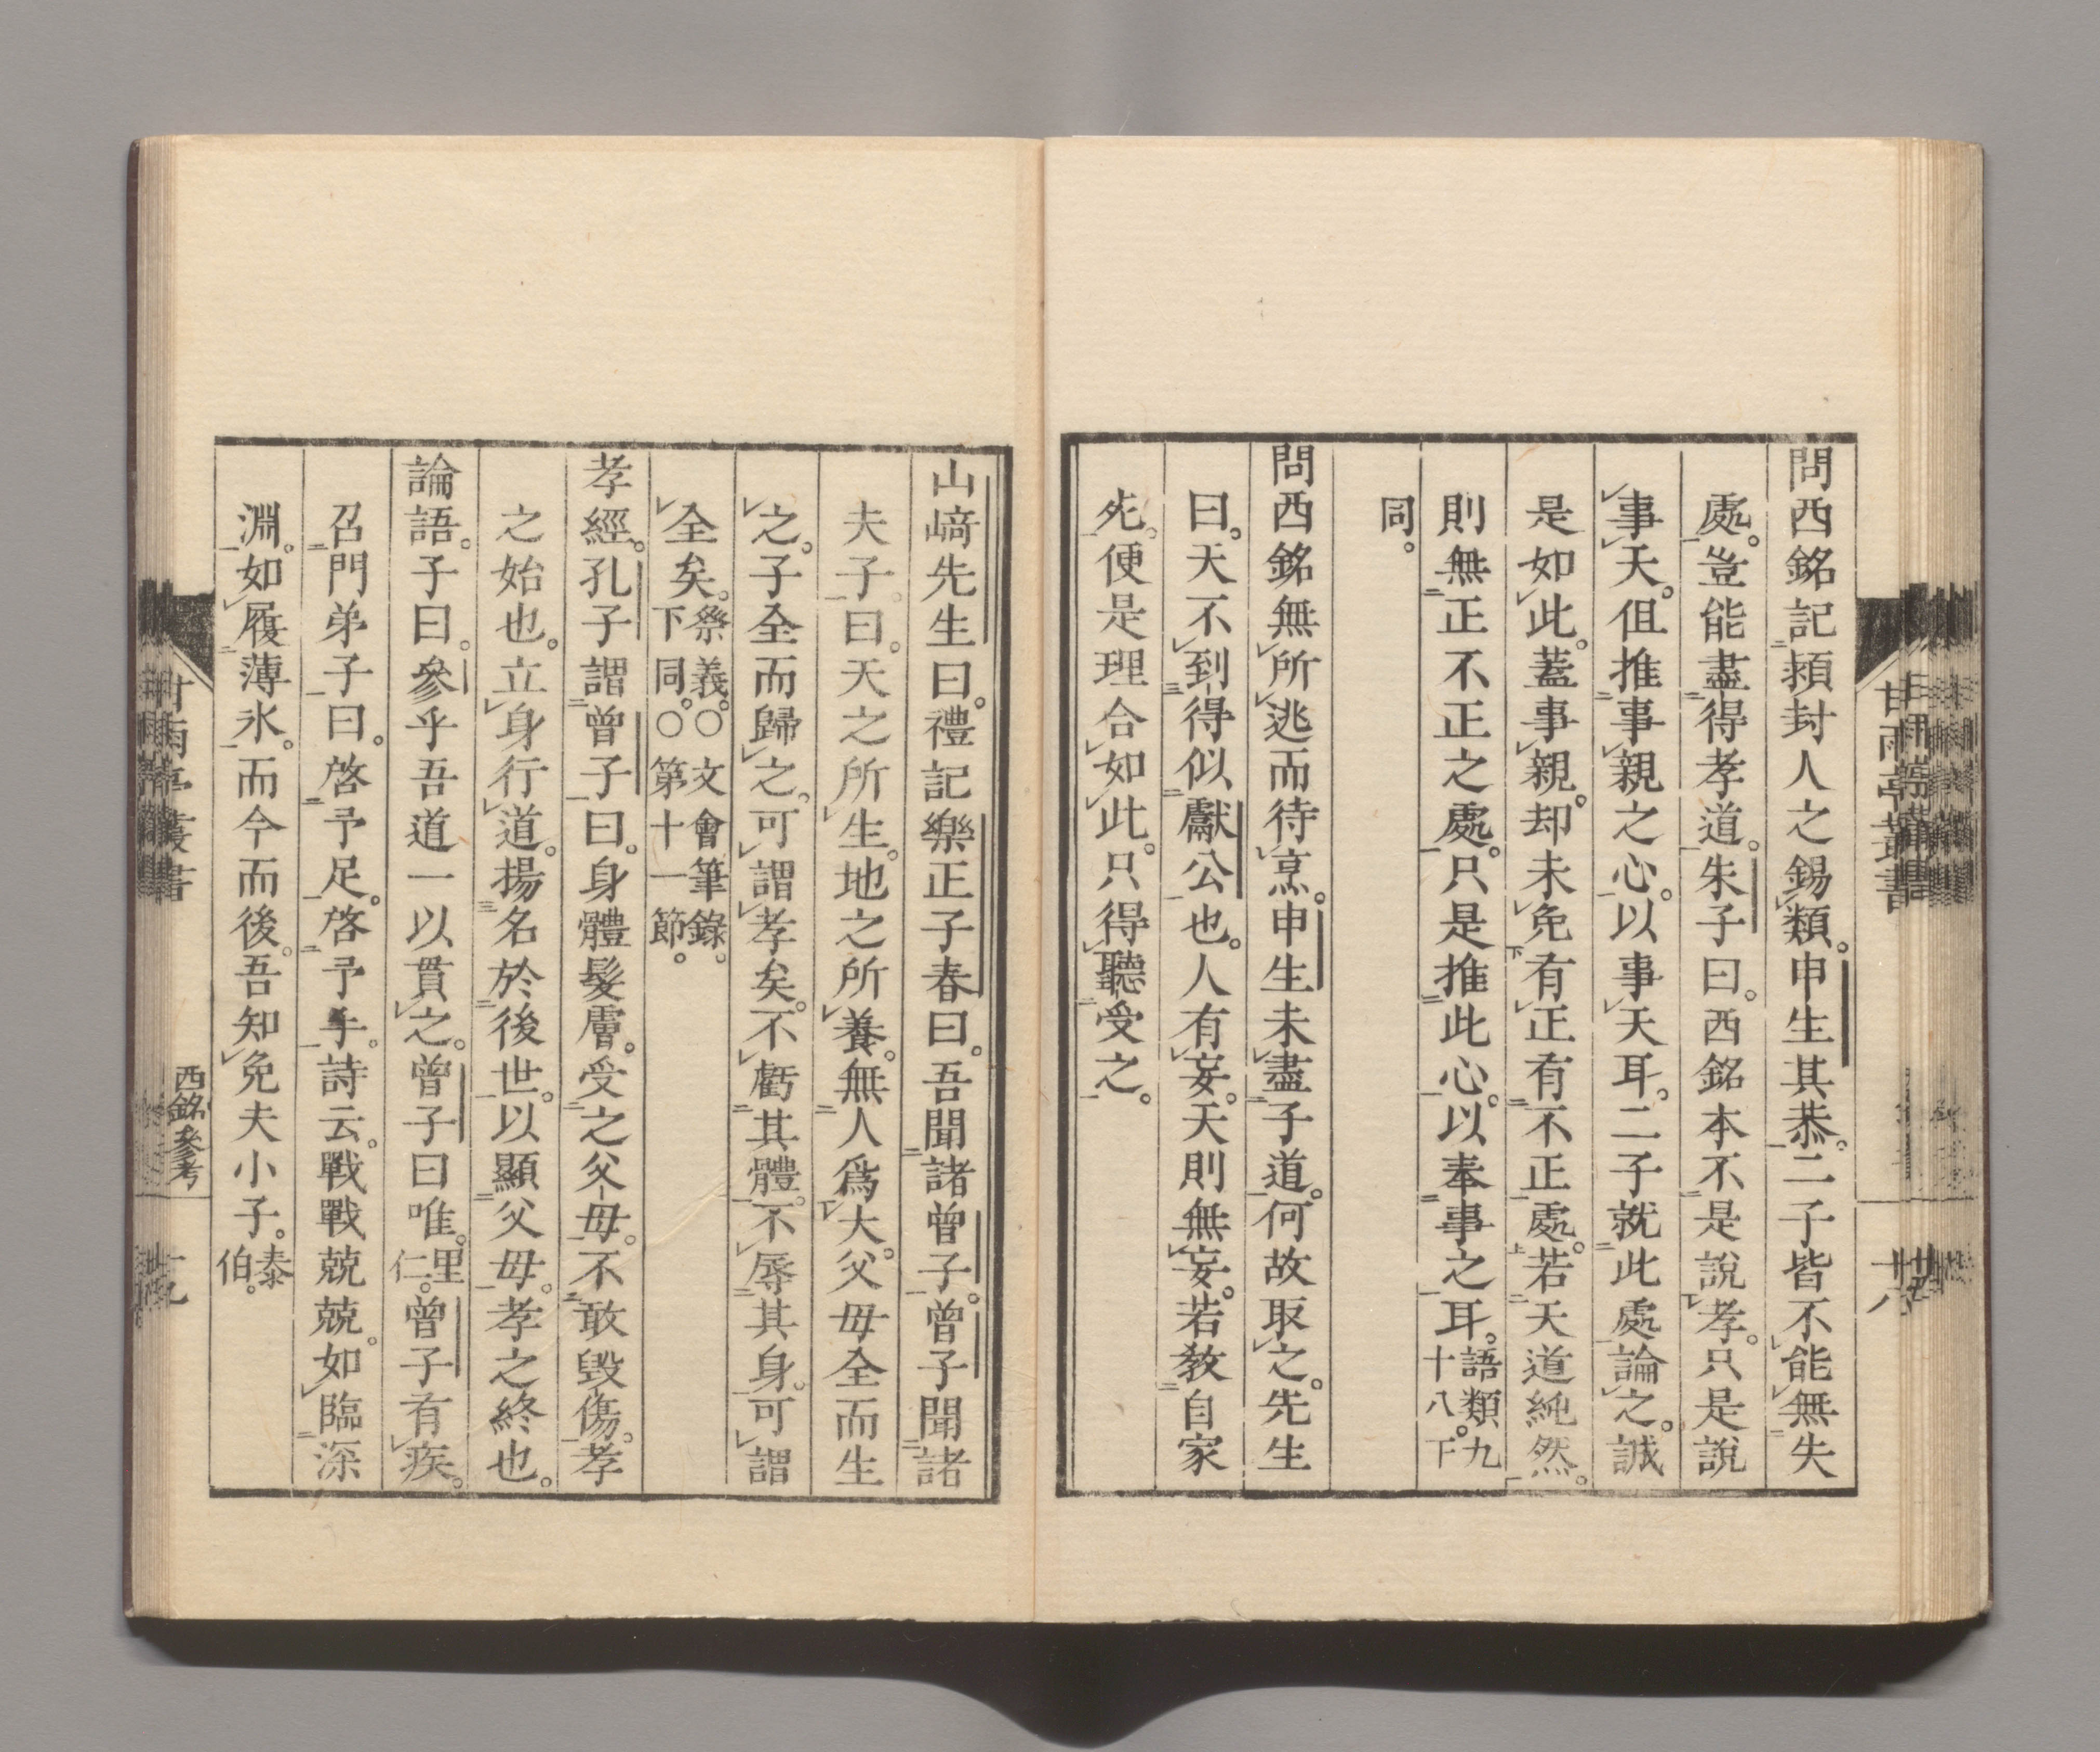 問西銘記潁封人之錫類。申生其恭。二子皆不能無失
處。豈能盡得孝道。朱子曰。西銘本不是說孝。只是說
事天。但推事親之心。以事天耳。二子就此處論之。誠
是如此。蓋事親。却未免有正有不正處。若天道純然。
則無正不正之處。只是推此心。以奉事之耳。語類九十八。下
同。
問西銘無所逃而待烹。申生未盡子道。何故取之。先生
曰。天不到得似獻公也。人有妄。天則無妄。若教自家
死。便是理合如此。只得聽受之。
甘雨亭叢書
十八
山﨑先生曰。禮記樂正子春曰。吾聞諸曾子。曾子聞諸
夫子曰。天之所生。地之所養。無人爲大。父母全而生
之。子全而歸之。可謂孝矣。不虧其體。不辱其身。可謂
全矣。祭義。○文會筆錄。下同。○第十一節。
孝經。孔子謂曾子曰。身體髮膚。受之父母。不敢毀傷。孝
之始也。立身行道。揚名於後世。以顯父母。孝之終也。
論語。子曰。參乎吾道一以貫之。曾子曰唯。里仁。曾子有疾。
召門弟子曰。啓予足。啓予手。詩云。戰戰兢兢。如臨深
淵。如履薄氷。而今而後。吾知免夫小子。泰伯。
西銘參考